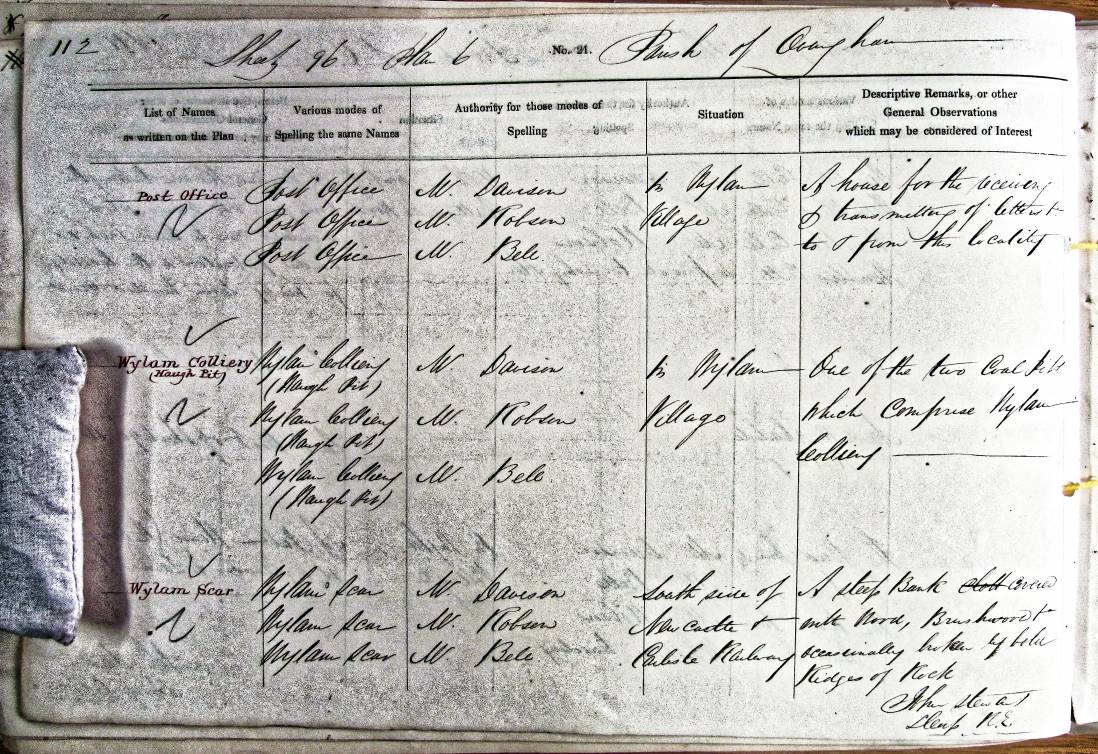 112
Sheet 96 Plan 6 No. 21. Parish of Ovingham
List of Names
as written on the Plan
Various modes of
Spelling the same Names
Authority for those modes of
Spelling
Situation
Descriptive Remarks, or other
General Observations
which may be considered of Interest
Post Office
Post Office
Post Office
Post Office
W. Davison
W. Robson
W. Bell
In Wylam
Village
A house for the receiving
& transmitting of letters &
to & from this locality
Wylam Colliery
(Haugh Pit)
Wylam Colliery
(Haugh Pit)
Wylam Colliery
(Haugh Pit)
Wylam Colliery
(Haugh Pit)
W. Davison
W. Robson
W. Bell
In Wylam
Village
One of the two Coal Pits
which Comprise Wylam
Colliery
Wylam Scar
Wylam Scar
Wylam Scar
Wylam Scar
W. Davison
W. Robson
W. Bell
South side of
Newcastle &
Carlisle Railway
A steep Bank covered
with Wood, Brushwood &
occasionally broken by bold
Ridges of Rock
John Stewart
R.E.